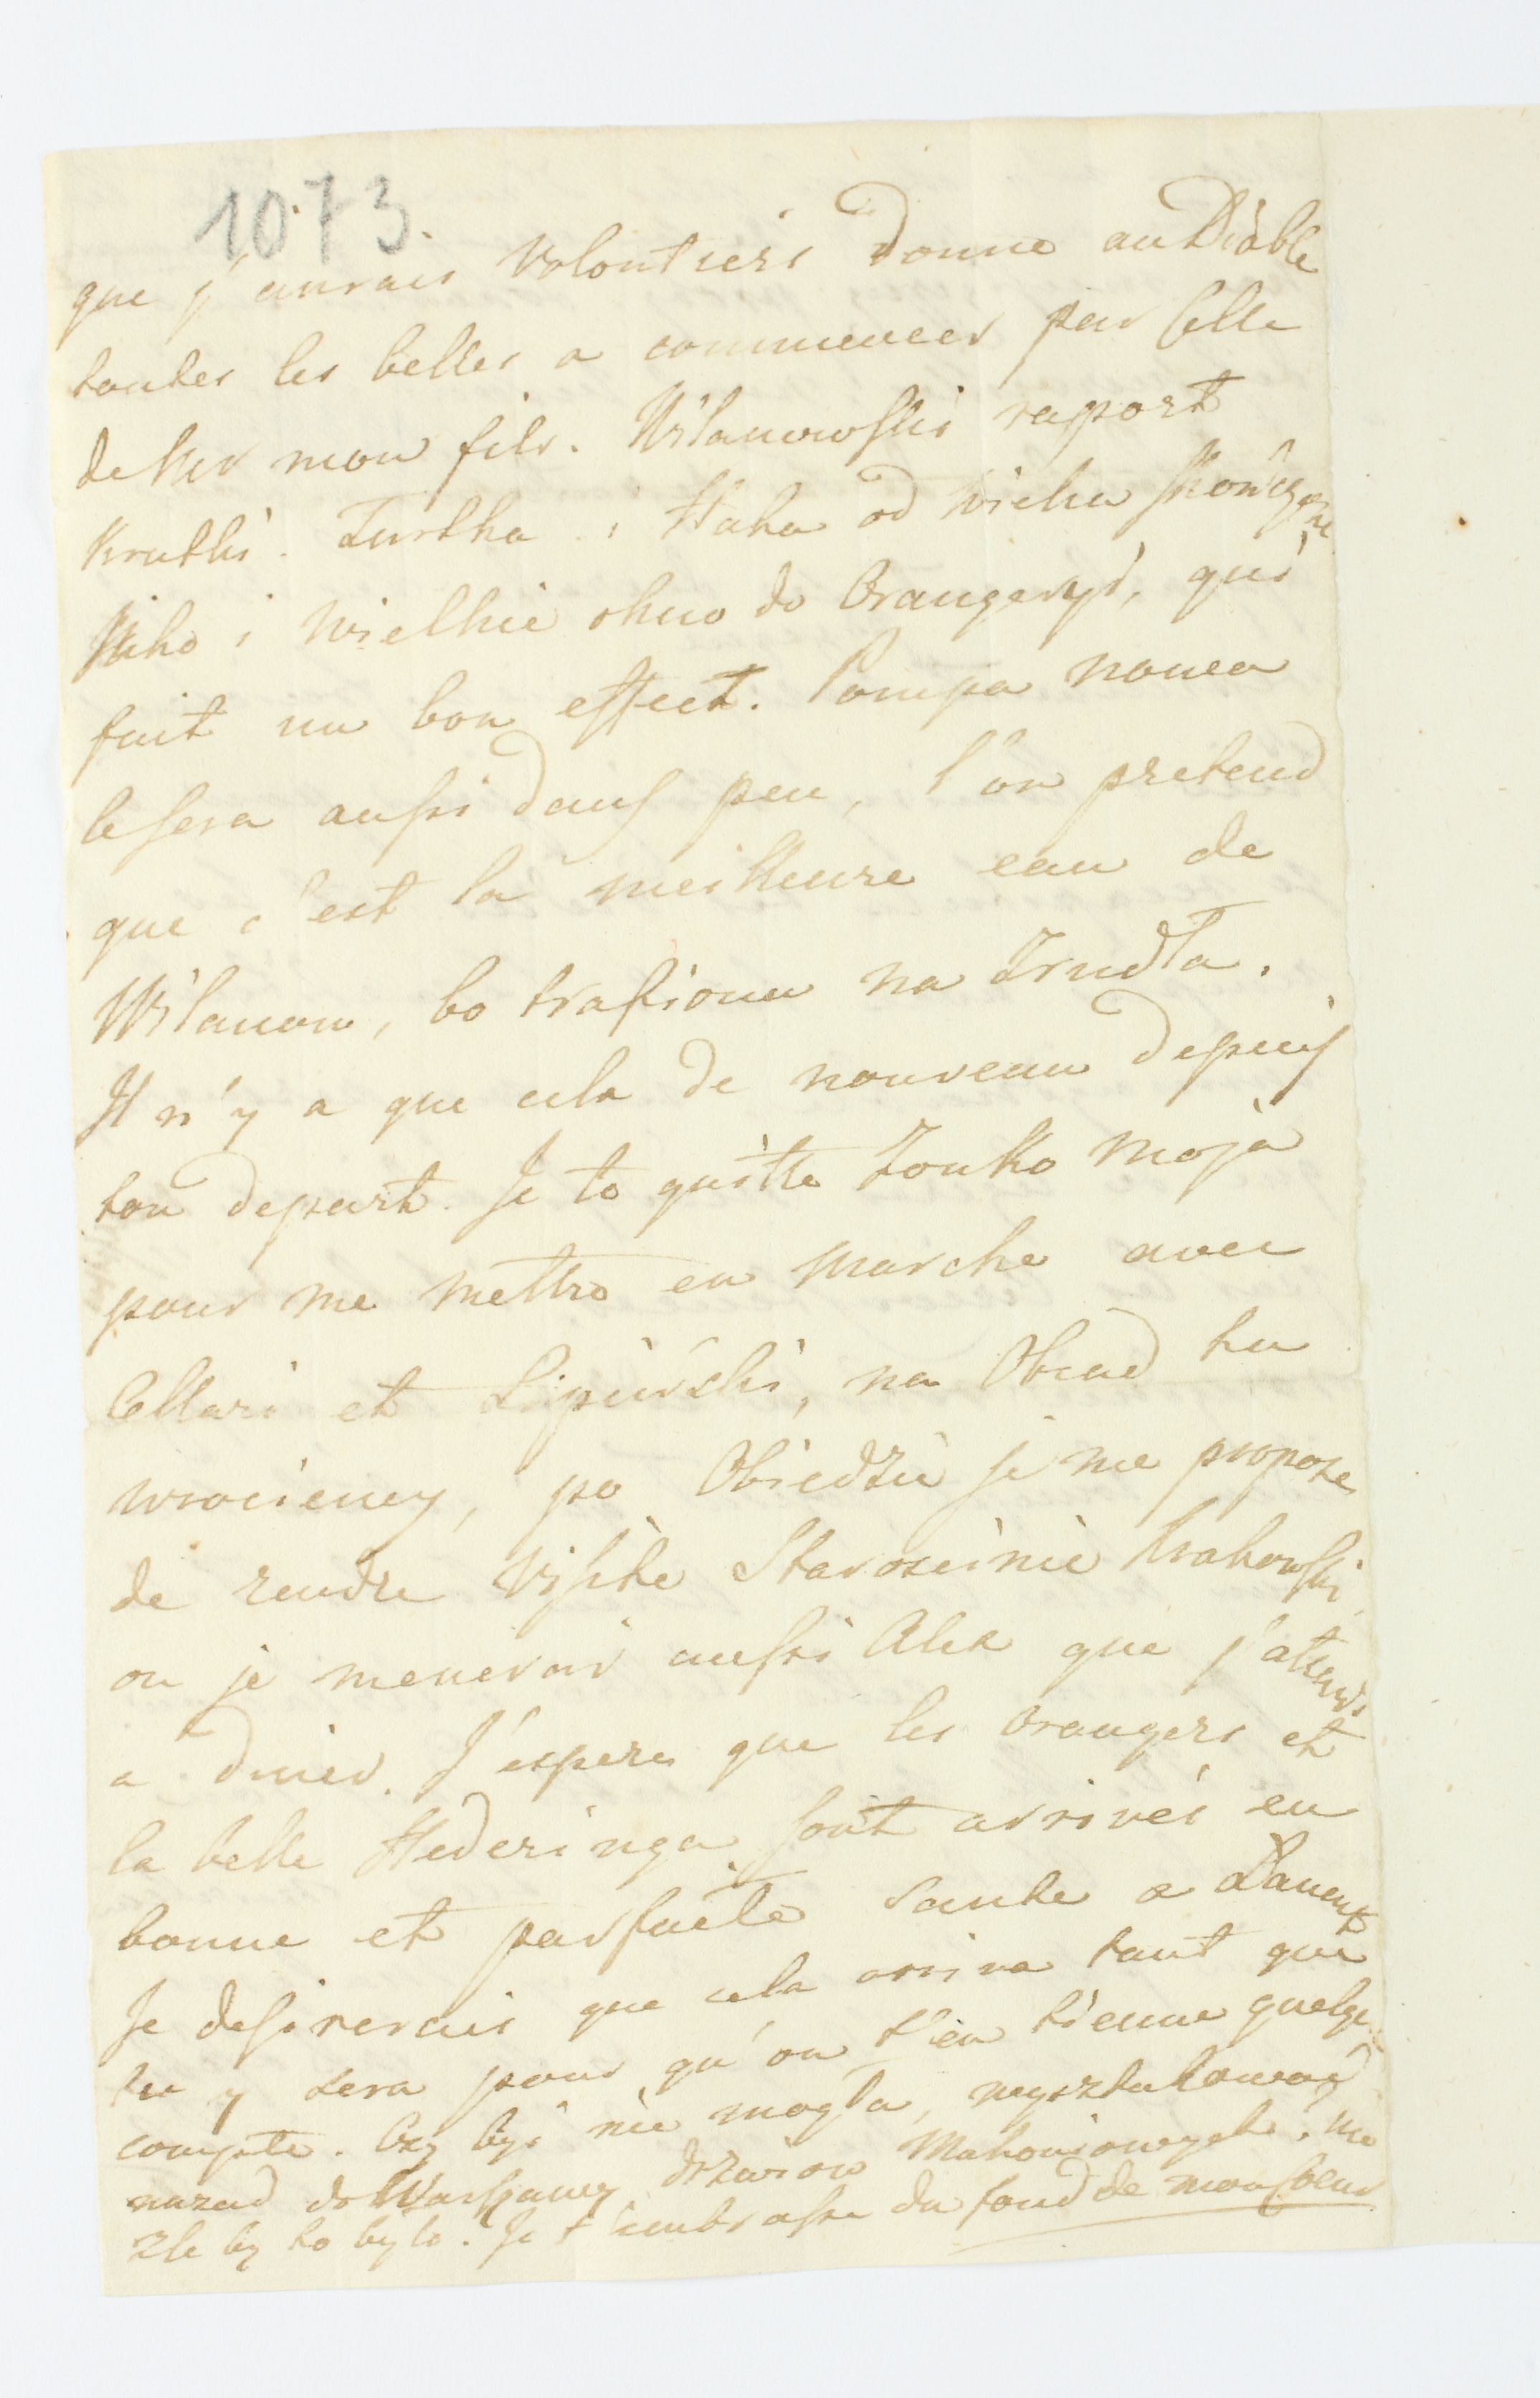 1073.
que j'aurais volontiers donne au Diable
toutes les belles a commencer par Celle
de mon fils. Wilanowski raport
krutki. Furtka i Haka od wieku skończone
i wielkie okno do Orangeryi, qui
fait un bon effect. Pompa nowa
le sera aussi dans peu, l'on pretend
que c'est la meilleure eau de
Wilanow, bo trafiona na zrudła.
Il n'y a que cela de nouveau depuis
ton depart. Je te quitte Zonko moja
pour me mettre en marche avec
Cellari et Lipinski, na Obiad tu
wrociemy, po Obiedzie je me propose
de rendre visite Staroscinie Krakowski,
ou je menerai aussi Alex que j'attends
a diner. J'espere que les orangers et
la belle Hederinga sont arrivés en
bonne et parfaite sante a Lancut
Je desirerais que cela arriva tant que
tu y sera pour qu'on t'en tienne quelque
compte. Czy byś nie mogła, wysztukować
nazad do Warszawy drzewow Mahoniowych, nie
zle by to bylo. Je t'embrasse du fond de mon Coeur